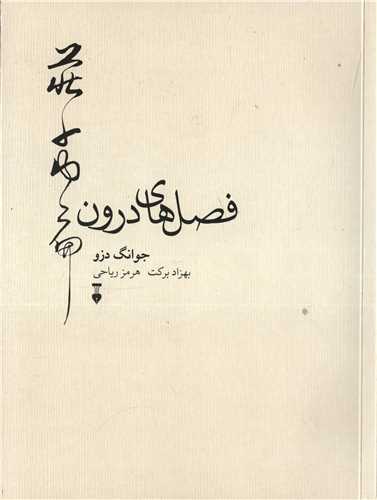 莊子內篇
فصل‌های درون
جوانگ دزو
بهزاد برکت هرمز ریاحی